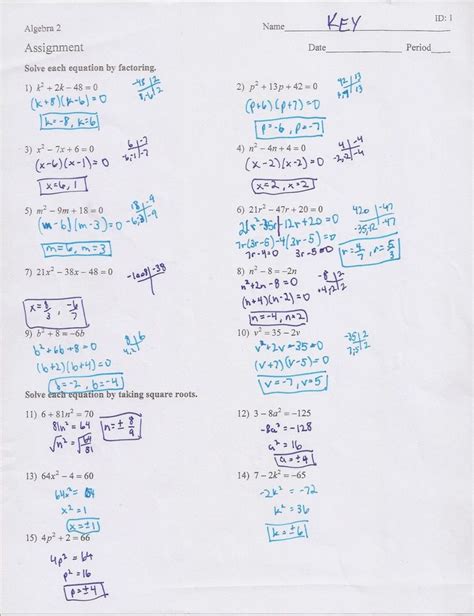 ID: 1
Algebra 2
Name KEY
Assignment
Date Period
Solve each equation by factoring.
1) k² + 2k − 48 = 0
-48 | 2
8,-6 | 2
(k+8)(k-6)=0
k=-8, k=6
2) p² + 13p + 42 = 0
42 | 13
(p+6)(p+7)=0
p=-6, p=-7
3) x² − 7x + 6 = 0
6 | -7
-6,-1 | -7
(x-6)(x-1)=0
x=6, 1
4) n² − 4n + 4 = 0
4 | -4
-2,-2 | -4
(x-2)(x-2)=0
x=2, x=2
5) m² − 9m + 18 = 0
18 | -9
-6,-3 | -9
(m-6)(m-3)=0
m=6, m=3
6) 21r² − 47r + 20 = 0
420 | -47
-35,-12 | -47
21r²-35r-12r+20=0
7r(3r-5)-4(3r-5)=0
7r-4=0 3r-5=0
r=4/7, r=5/3
7) 21x² − 38x − 48 = 0
-1008 | -38
x=8/3, -6/7
8) n² − 8 = −2n
-8 | 2
n²+2n-8=0
(n+4)(n-2)=0
n=-4, n=2
9) b² + 8 = −6b
8 | 6
4,2
b²+6b+8=0
(b+2)(b+4)=0
b=-2, b=-4
10) v² = 35 − 2v
-35 | 2
7,-5 | 2
v²+2v-35=0
(v+7)(v-5)=0
v=-7, v=5
Solve each equation by taking square roots.
11) 6 + 81n² = 70
81n² = 64
√n² = √64/81
n=± 8/9
12) 3 − 8a² = −125
-8a² = -128
a² = 16
a = ±4
13) 64x² − 4 = 60
64x² = 64
x² = 1
x = ±1
14) 7 − 2k² = −65
-2k² = -72
k² = 36
k = ±6
15) 4p² + 2 = 66
4p² = 64
p² = 16
p = ±4